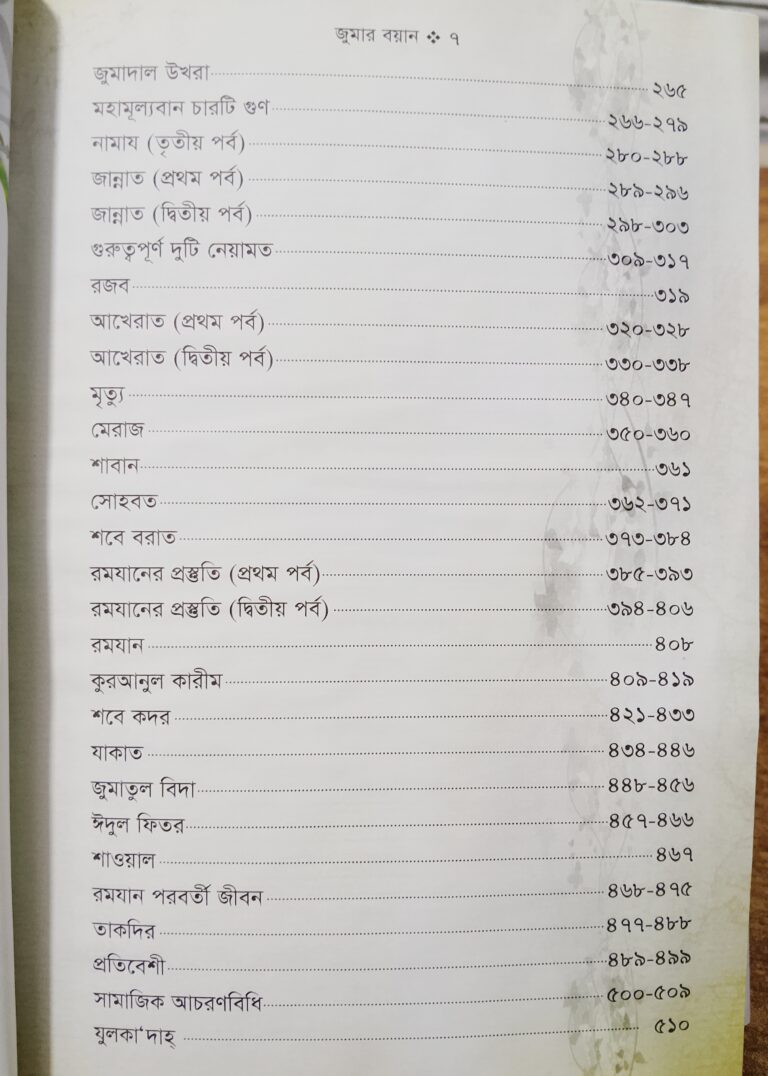 জুমার বয়ান ❖ ৭
জুমাদাল উখরা ২৬৫
মহামূল্যবান চারটি গুণ ২৬৬-২৭৯
নামায (তৃতীয় পর্ব) ২৮০-২৮৮
জান্নাত (প্রথম পর্ব) ২৮৯-২৯৬
জান্নাত (দ্বিতীয় পর্ব) ২৯৮-৩০৩
গুরুত্বপূর্ণ দুটি নেয়ামত ৩০৯-৩১৭
রজব ৩১৯
আখেরাত (প্রথম পর্ব) ৩২০-৩২৮
আখেরাত (দ্বিতীয় পর্ব) ৩৩০-৩৩৮
মৃত্যু ৩৪০-৩৪৭
মেরাজ ৩৫০-৩৬০
শাবান ৩৬১
সোহবত ৩৬২-৩৭১
শবে বরাত ৩৭৩-৩৮৪
রমযানের প্রস্তুতি (প্রথম পর্ব) ৩৮৫-৩৯৩
রমযানের প্রস্তুতি (দ্বিতীয় পর্ব) ৩৯৪-৪০৬
রমযান ৪০৮
কুরআনুল কারীম ৪০৯-৪১৯
শবে কদর ৪২১-৪৩৩
যাকাত ৪৩৪-৪৪৬
জুমাতুল বিদা ৪৪৮-৪৫৬
ঈদুল ফিতর ৪৫৭-৪৬৬
শাওয়াল ৪৬৭
রমযান পরবর্তী জীবন ৪৬৮-৪৭৫
তাকদির ৪৭৭-৪৮৮
প্রতিবেশী ৪৮৯-৪৯৯
সামাজিক আচরণবিধি ৫০০-৫০৯
যুলকা'দাহ্ ৫১০